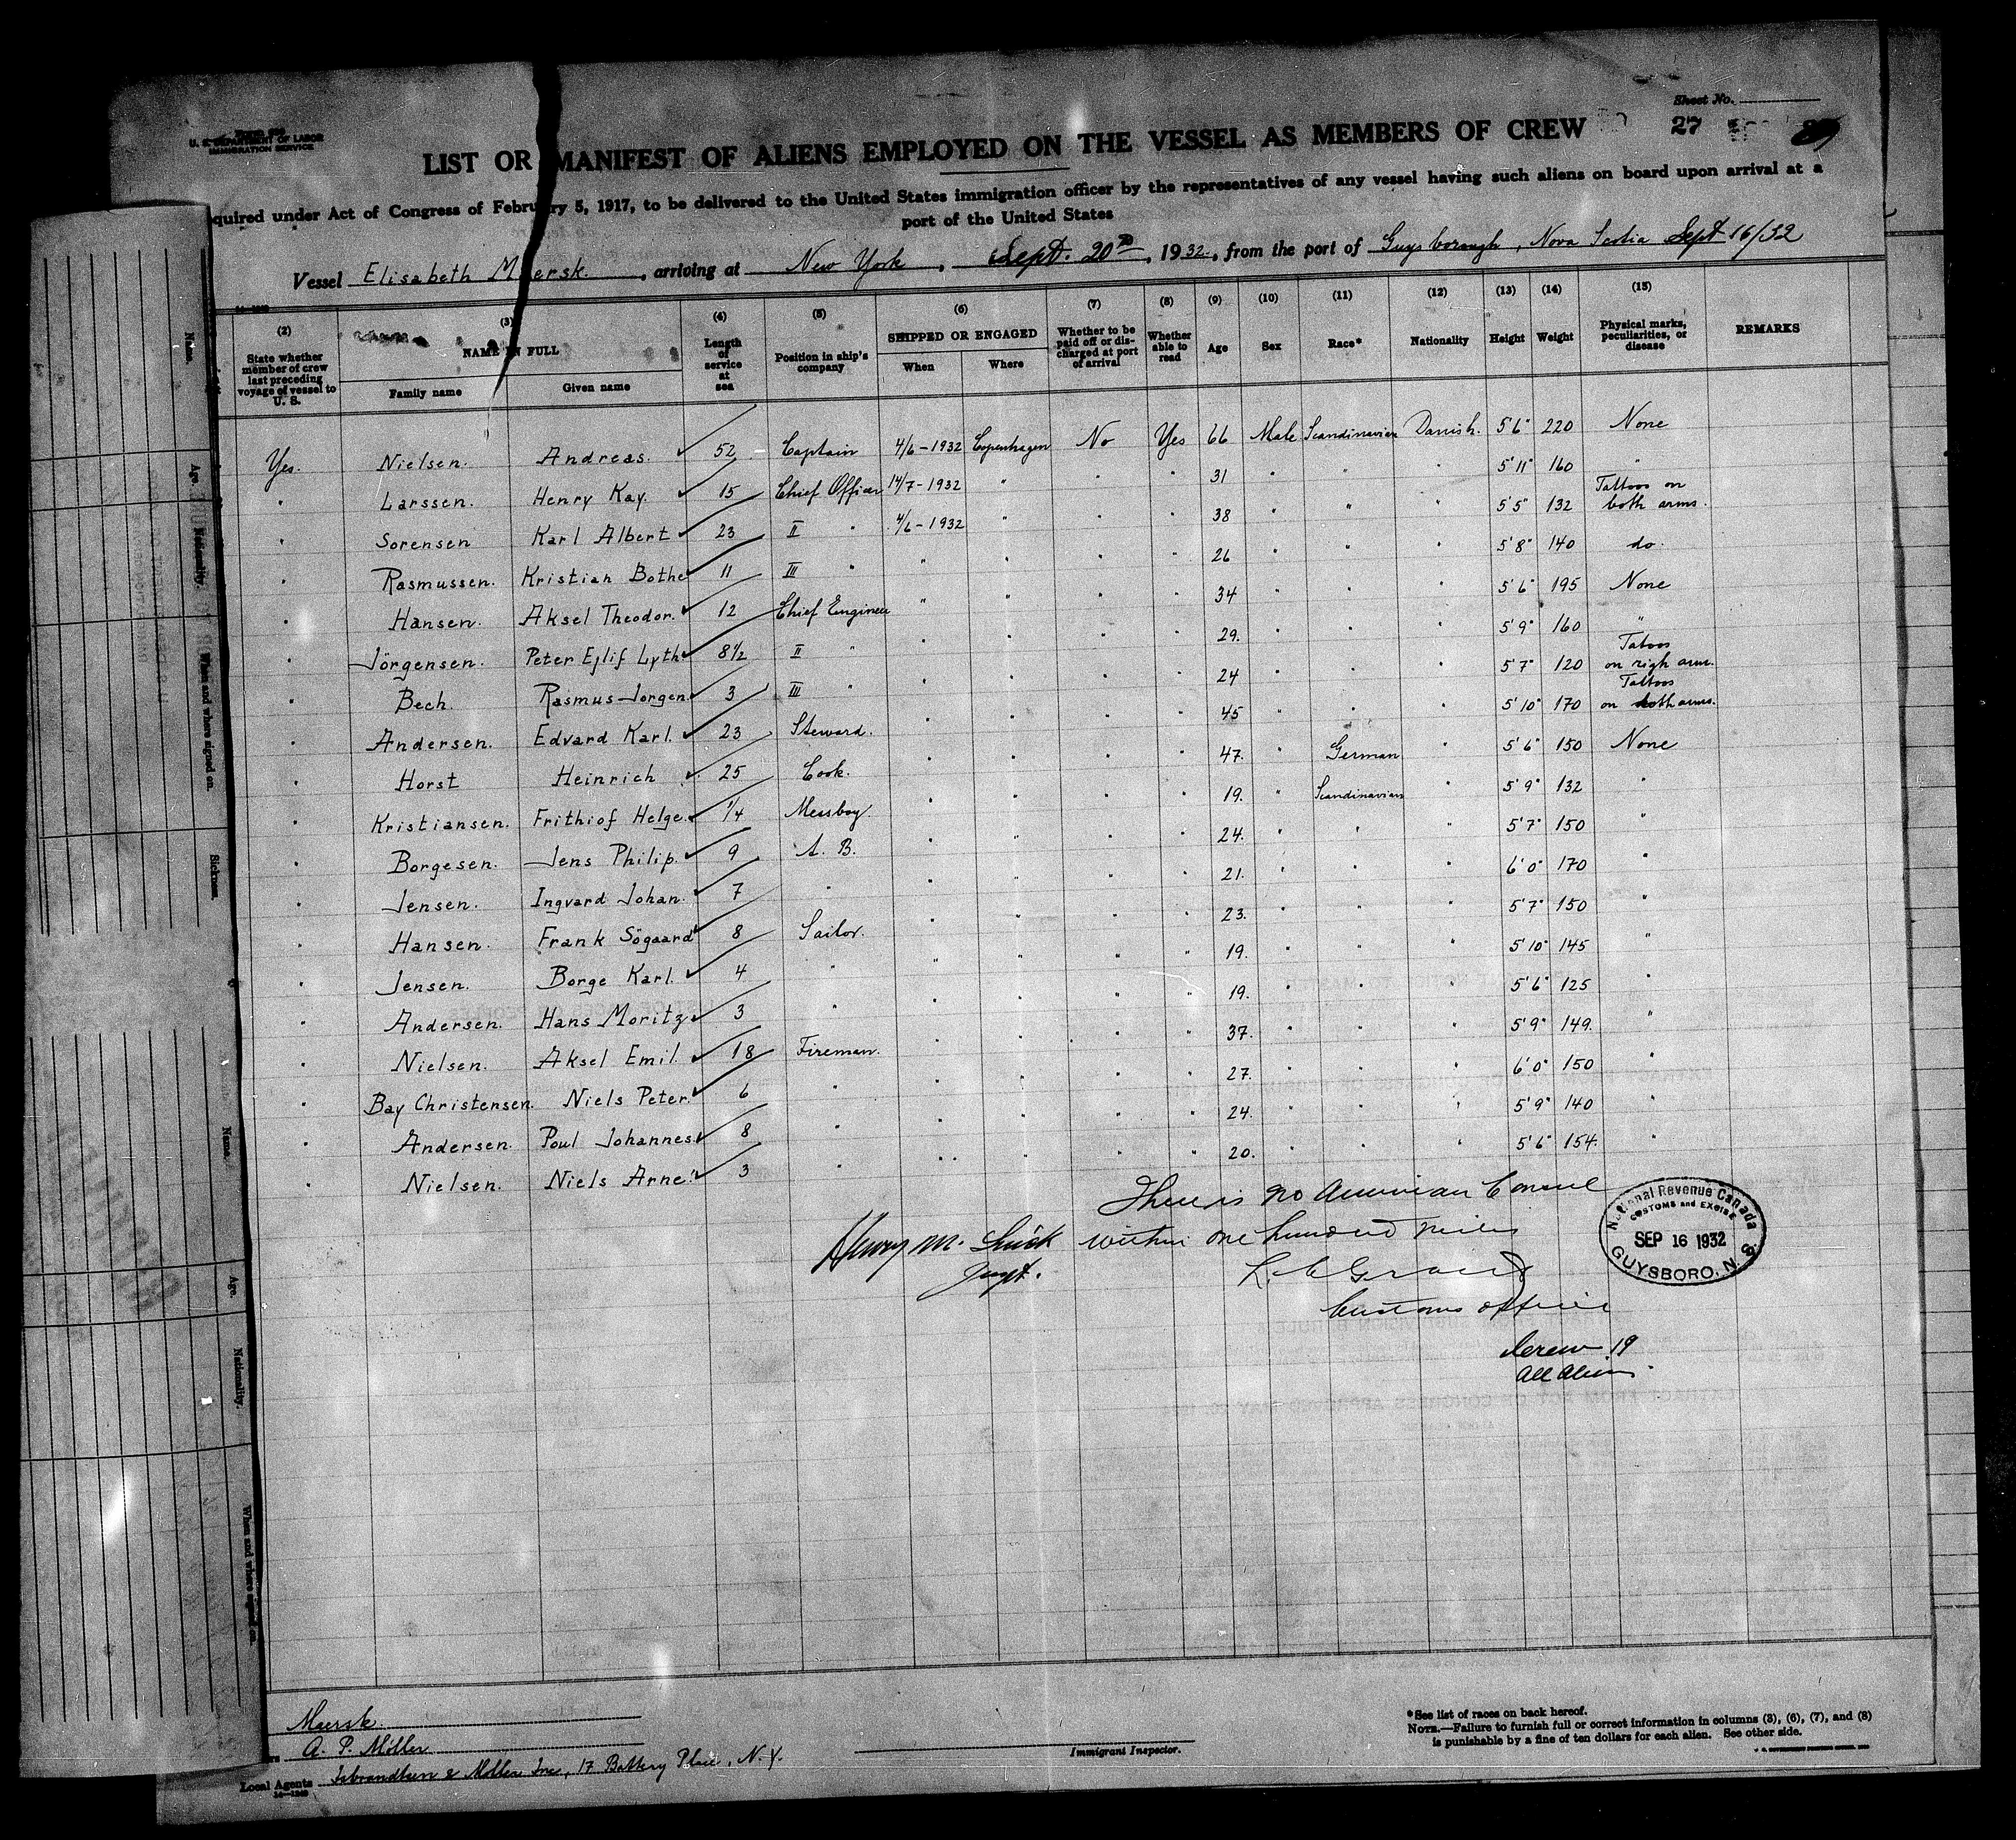 Sheet No.
U. S. DEPARTMENT OF LABOR
IMMIGRATION SERVICE
LIST OR MANIFEST OF ALIENS EMPLOYED ON THE VESSEL AS MEMBERS OF CREW 27
quired under Act of Congress of February 5, 1917, to be delivered to the United States immigration officer by the representatives of any vessel having such aliens on board upon arrival at a
port of the United States
Vessel Elisabeth Maersk, arriving at New York, Sept. 20th, 1932, from the port of Guysborough, Nova Scotia Sept 16/32
(2) (3) (4) (5) (6) (7) (8) (9) (10) (11) (12) (13) (14) (15)
State whether member of crew last preceding voyage of vessel to U. S. NAME IN FULL Family name Given name Length of service at sea Position in ship's company SHIPPED OR ENGAGED When Where Whether to be paid off or discharged at port of arrival Whether able to read Age Sex Race* Nationality Height Weight Physical marks, peculiarities, or disease REMARKS
Yes. Nielsen. Andreas. 52 Captain 4/6-1932 Copenhagen No Yes 66 Male Scandinavian Danish. 5'6" 220 None
" Larssen. Henry Kay. 15 Chief Officer 14/7-1932 " " " 31 " " " 5'11" 160 "
" Sorensen Karl Albert 23 II " 4/6-1932 " " " 38 " " " 5'5" 132 Tattoos on both arms.
" Rasmussen. Kristian Bothe 11 III " " " " " 26 " " " 5'8" 140 do.
" Hansen. Aksel Theodor. 12 Chief Engineer " " " " 34 " " " 5'6" 195 None
" Jörgensen. Peter Ejlif Lyth 8½ II " " " " " 29. " " " 5'9" 160 "
" Bech. Rasmus Jorgen 3 III " " " " " 24 " " " 5'7" 120 Tatoos on righ arm.
" Andersen. Edvard Karl. 23 Steward. " " " " 45 " " " 5'10" 170 Tattoos on both arms.
" Horst Heinrich 25 Cook. " " " " 47. " German " 5'6" 150 None
" Kristiansen. Frithiof Helge. 1/4 Messboy. " " " " 19. " Scandinavian " 5'9" 132 "
" Borgesen. Jens Philip. 9 A. B. " " " " 24. " " " 5'7" 150 "
" Jensen. Ingvard Johan. 7 " " " " " 21. " " " 6'0" 170 "
" Hansen. Frank Sögaard 8 Sailor. " " " " 23. " " " 5'7" 150 "
" Jensen. Borge Karl. 4 " " " " " 19. " " " 5'10" 145 "
" Andersen. Hans Moritz 3 " " " " " 19. " " " 5'6" 125 "
" Nielsen. Aksel Emil. 18 Fireman. " " " " 37. " " " 5'9" 149. "
" Bay Christensen. Niels Peter. 6 " " " " " 27. " " " 6'0" 150 "
" Andersen. Poul Johannes. 8 " " " " " 24. " " " 5'9" 140 "
" Nielsen. Niels Arne. 3 " " " " " 20. " " " 5'6" 154. "
There is no American Consul
Henry M. within one hundred miles
Customs officer
Crew 19
All Aliens
National Revenue Canada
CUSTOMS and EXCISE
SEP 16 1932
GUYSBORO, N. S.
Name.
Age.
Nationality.
When and where signed on.
Sickness.
Name.
Age.
Nationality.
When and where signed on.
Maersk.
A. P. Möller
Local Agents Isbrandtsen & Moller Inc, 17 Battery Place, N.Y.
Immigrant Inspector.
*See list of races on back hereof.
NOTE.—Failure to furnish full or correct information in columns (3), (6), (7), and (8)
is punishable by a fine of ten dollars for each alien. See other side.